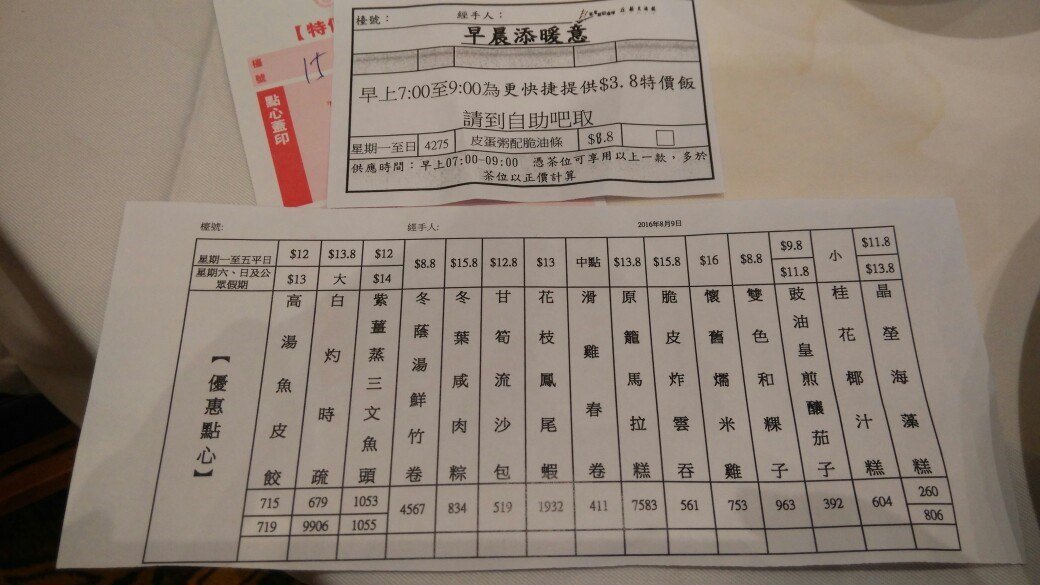 【特
檯號
15
點心蓋印
檯號：
經手人：
早晨添暖意
早上7:00至9:00為更快捷提供$3.8特價飯
請到自助吧取
星期一至日 4275 皮蛋粥配脆油條 $8.8
供應時間：早上07:00-09:00 憑茶位可享用以上一款，多於
茶位以正價計算
檯號:
經手人:
2016年8月9日
星期一至五平日 $12 $13.8 $12 $8.8 $15.8 $12.8 $13 中點 $13.8 $15.8 $16 $8.8 $9.8 小 $11.8
星期六、日及公眾假期 $13 大 $14 $11.8 $13.8
【優惠點心】
高湯魚皮餃
白灼時疏
紫薑蒸三文魚頭
冬蔭湯鮮竹卷
冬葉咸肉粽
甘筍流沙包
花枝鳳尾蝦
滑雞春卷
原籠馬拉糕
脆皮炸雲吞
懷舊糯米雞
雙色和粿子
豉油皇煎釀茄子
桂花椰汁糕
晶瑩海藻糕
715 679 1053 4567 834 519 1932 411 7583 561 753 963 392 604 260
719 9906 1055 806